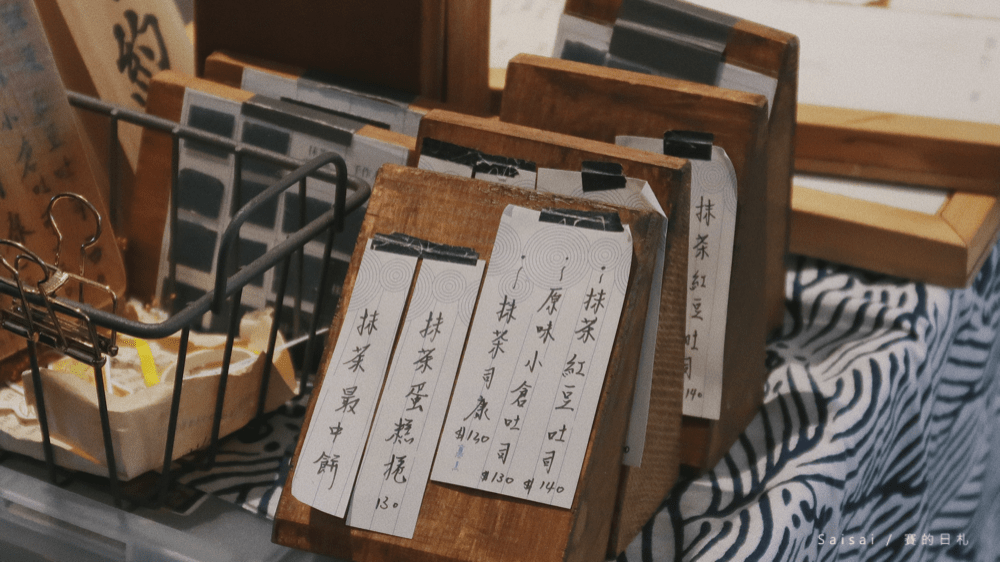 抹茶紅豆吐司
$140
原味小倉吐司
$130
抹茶司康
$130
抹茶蛋糕捲
130
抹茶最中餅
抹茶紅豆吐司
140
小倉吐
Saisai / 賽的日札